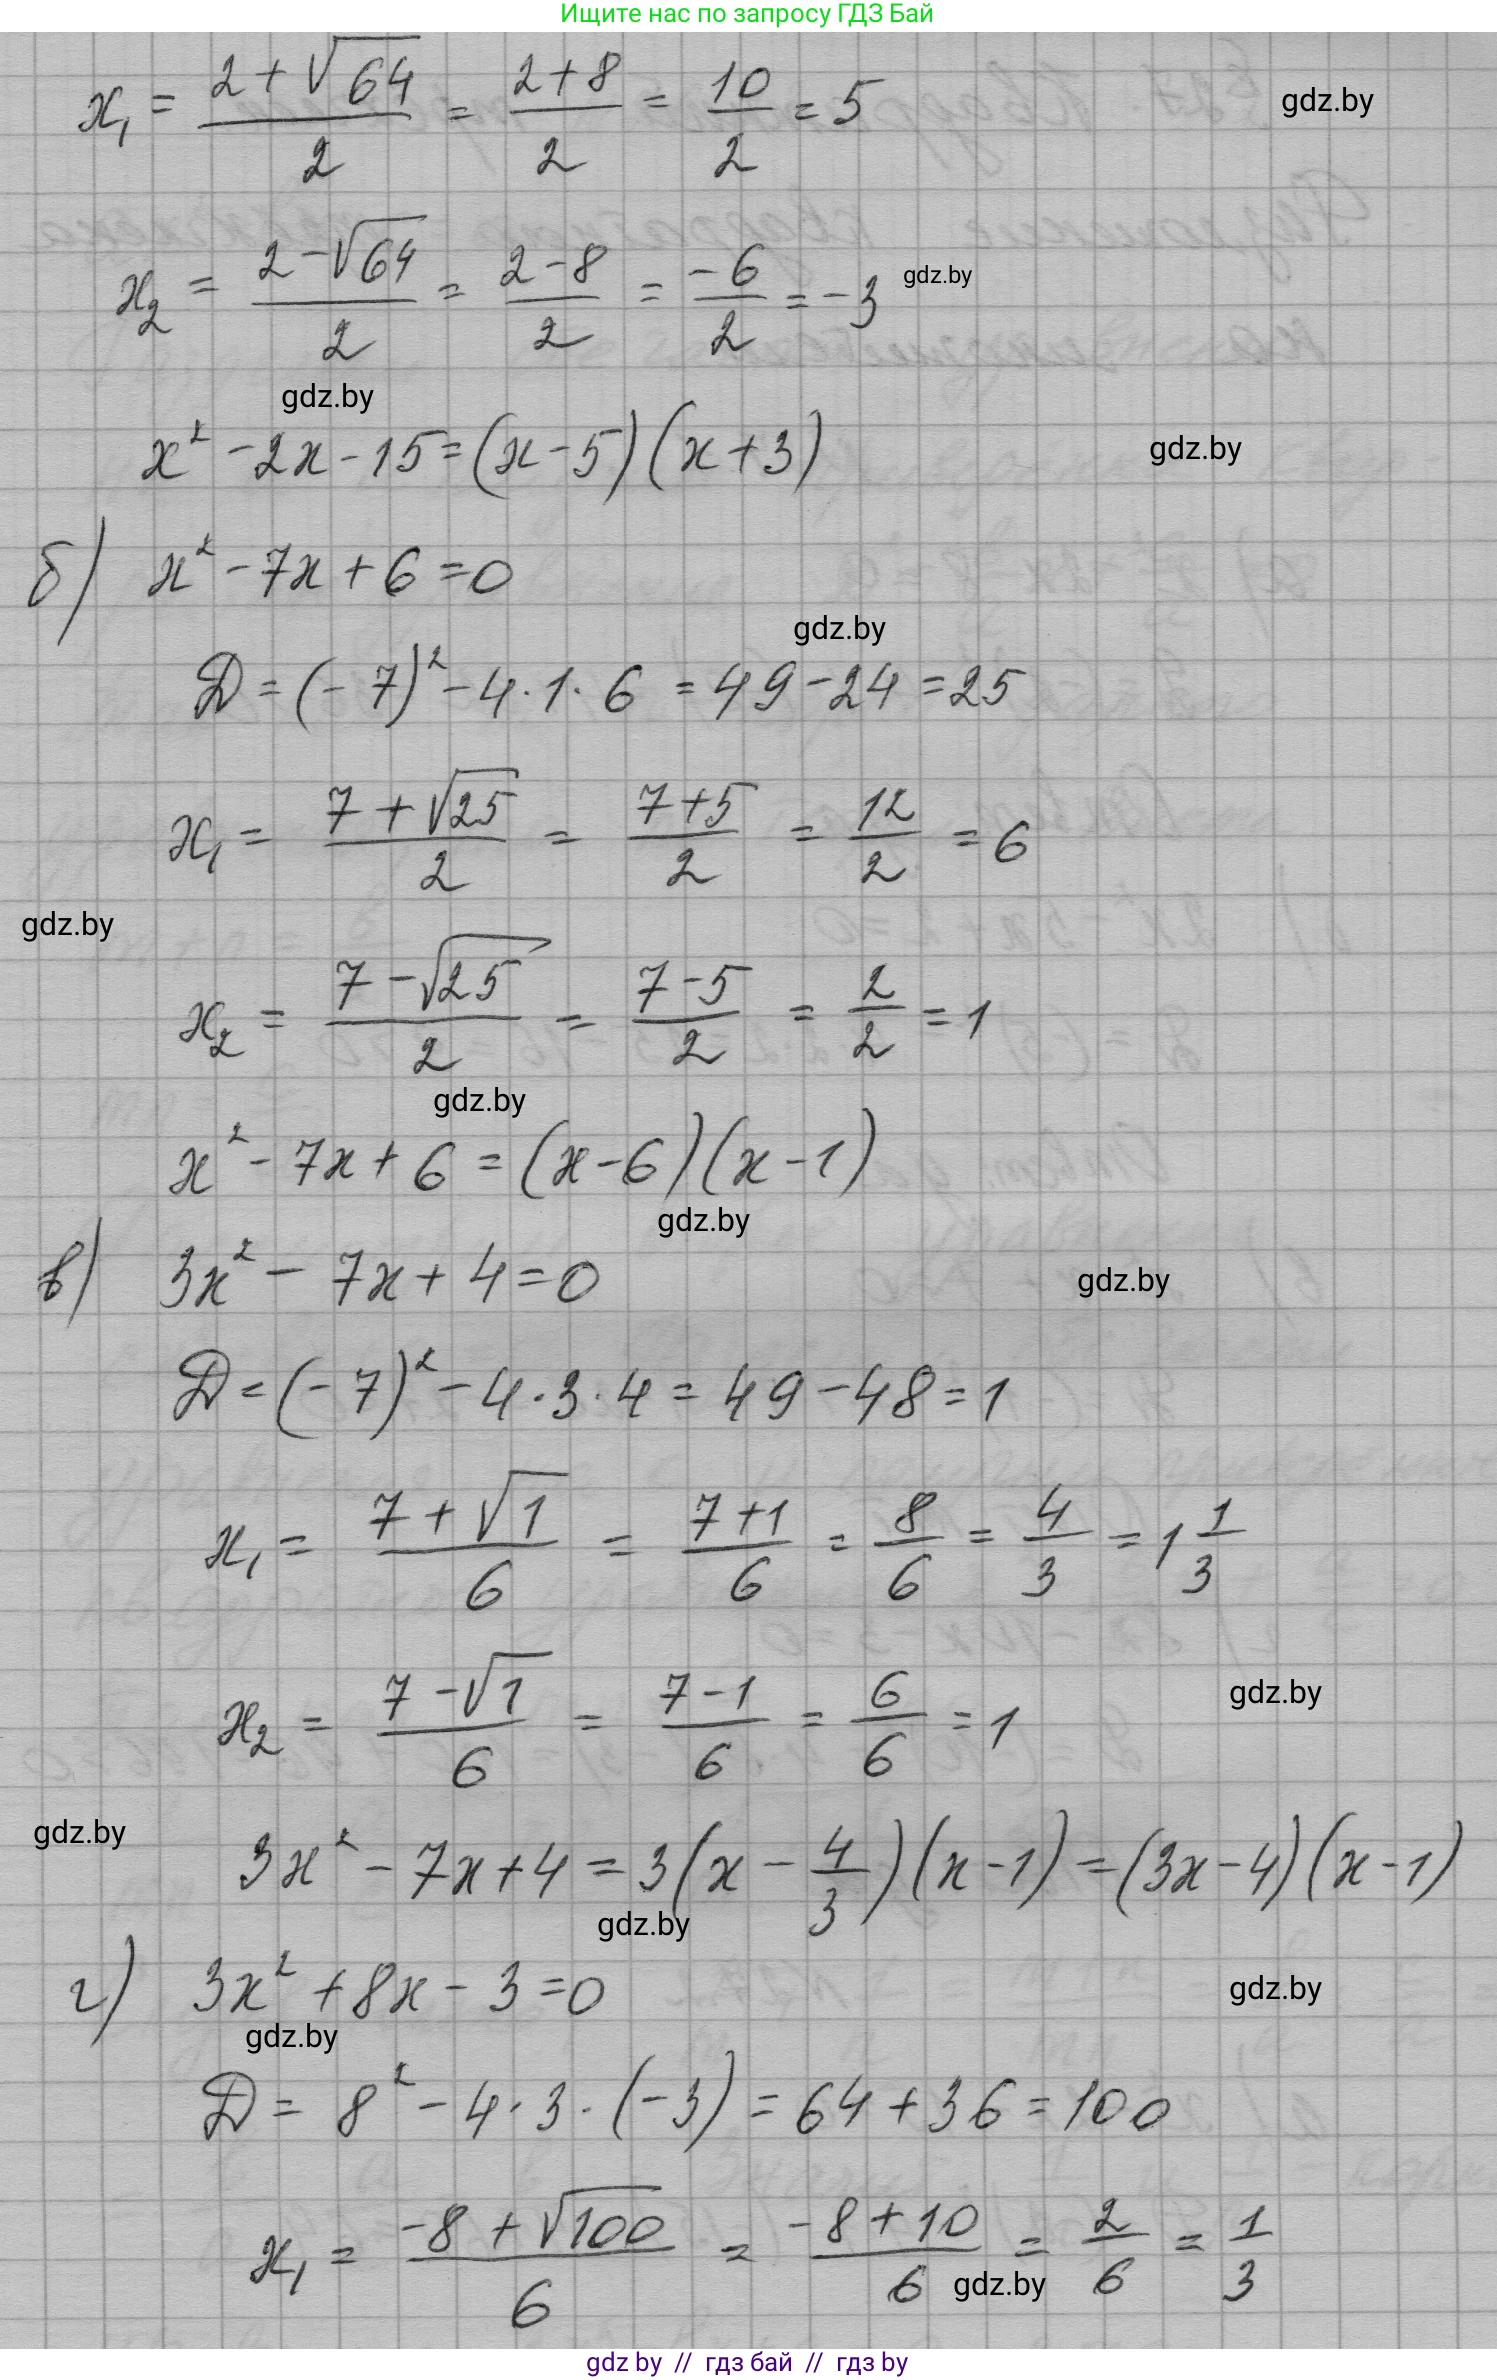 Ищите нас по запросу ГДЗ Бай
x₁ = (2+√64)/2 = (2+8)/2 = 10/2 = 5
gdz.by
x₂ = (2-√64)/2 = (2-8)/2 = -6/2 = -3
gdz.by
gdz.by
x² - 2x - 15 = (x-5)(x+3)
gdz.by
б) x² - 7x + 6 = 0
gdz.by
D = (-7)² - 4·1·6 = 49 - 24 = 25
x₁ = (7+√25)/2 = (7+5)/2 = 12/2 = 6
gdz.by
x₂ = (7-√25)/2 = (7-5)/2 = 2/2 = 1
gdz.by
x² - 7x + 6 = (x-6)(x-1)
gdz.by
в) 3x² - 7x + 4 = 0
gdz.by
D = (-7)² - 4·3·4 = 49 - 48 = 1
x₁ = (7+√1)/6 = (7+1)/6 = 8/6 = 4/3 = 1 1/3
x₂ = (7-√1)/6 = (7-1)/6 = 6/6 = 1
gdz.by
gdz.by
3x² - 7x + 4 = 3(x - 4/3)(x-1) = (3x-4)(x-1)
gdz.by
г) 3x² + 8x - 3 = 0
gdz.by
gdz.by
D = 8² - 4·3·(-3) = 64 + 36 = 100
x₁ = (-8+√100)/6 = (-8+10)/6 = 2/6 = 1/3
gdz.by
gdz by // гдз бай // гдз by